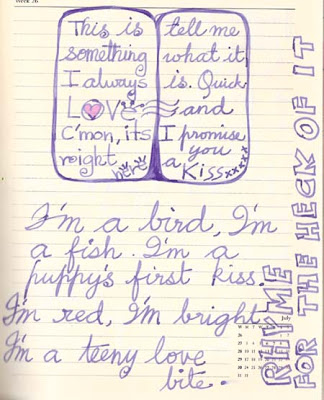 Week 26
This is
something
I always
LOVE
C'mon, its
right
here
tell me
what it
is. Quick
and
I promise
you
a
Kiss xxxxx
RHYME
FOR THE HECK OF IT
I'm a bird, I'm
a fish. I'm a
puppy's first kiss.
I'm red, I'm bright
I'm a teeny love
bite.
July